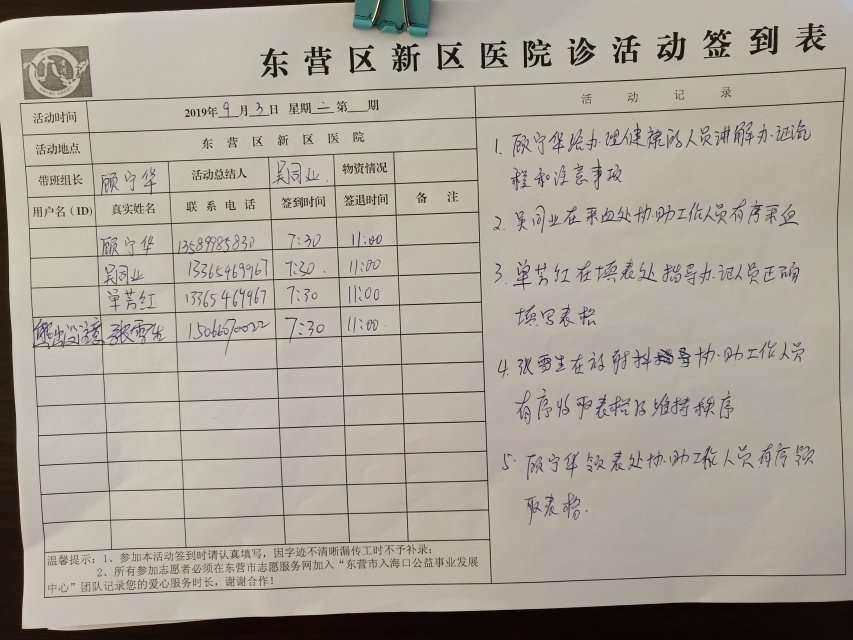 东营区新区医院诊活动签到表
活动时间 2019年9月3日 星期二 第 期
活动地点 东营区新区医院
带班组长 顾宁华 活动总结人 吴同业 物资情况
用户名（ID） 真实姓名 联系电话 签到时间 签退时间 备注
顾宁华 13589985830 7:30 11:00
吴同业 13365469967 7:30 11:00
单芳红 13365469967 7:30 11:00
张雪生 15066070022 7:30 11:00
温馨提示：1、参加本活动签到时请认真填写，因字迹不清晰漏传工时不予补录；
2、所有参加志愿者必须在东营市志愿服务网加入“东营市入海口公益事业发展
中心”团队记录您的爱心服务时长，谢谢合作！
活动记录
1. 顾宁华给办理健康的人员讲解办证流
程和注意事项
2. 吴同业在采血处协助工作人员有序采血
3. 单芳红在填表处指导办证人员正确
填写表格
4. 张雪生在放射科协助工作人员
有序收取表格及维持秩序
5. 顾宁华领表处协助工作人员有序领
取表格.